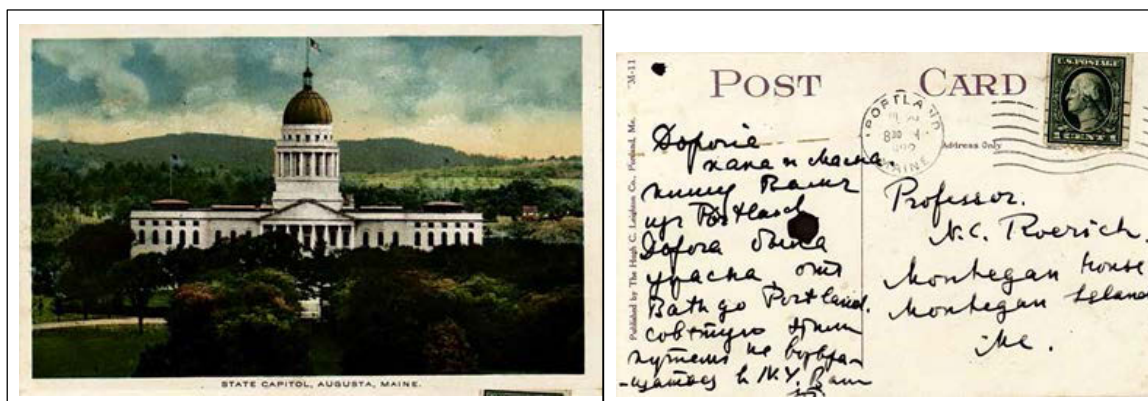 STATE CAPITOL, AUGUSTA, MAINE.
M-11
POST CARD
Published by The Hugh C. Leighton Co., Portland, Me.
Address Only
PORTLAND
830
MAINE
U.S.POSTAGE
1 CENT 1
Дорогіе
папа и мама.
пишу Вамъ
изъ Portland
Дорога была
ужасна отъ
Bath до Portland.
совѣтую этимъ
путемъ не возвра-
-щаться въ N.Y. Ваш
Professor.
N.C. Roerich
Monhegan House
Monhegan Island
Me.